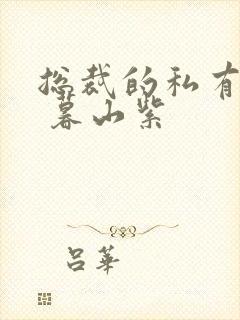 总裁的私有
暮山紫
吕华